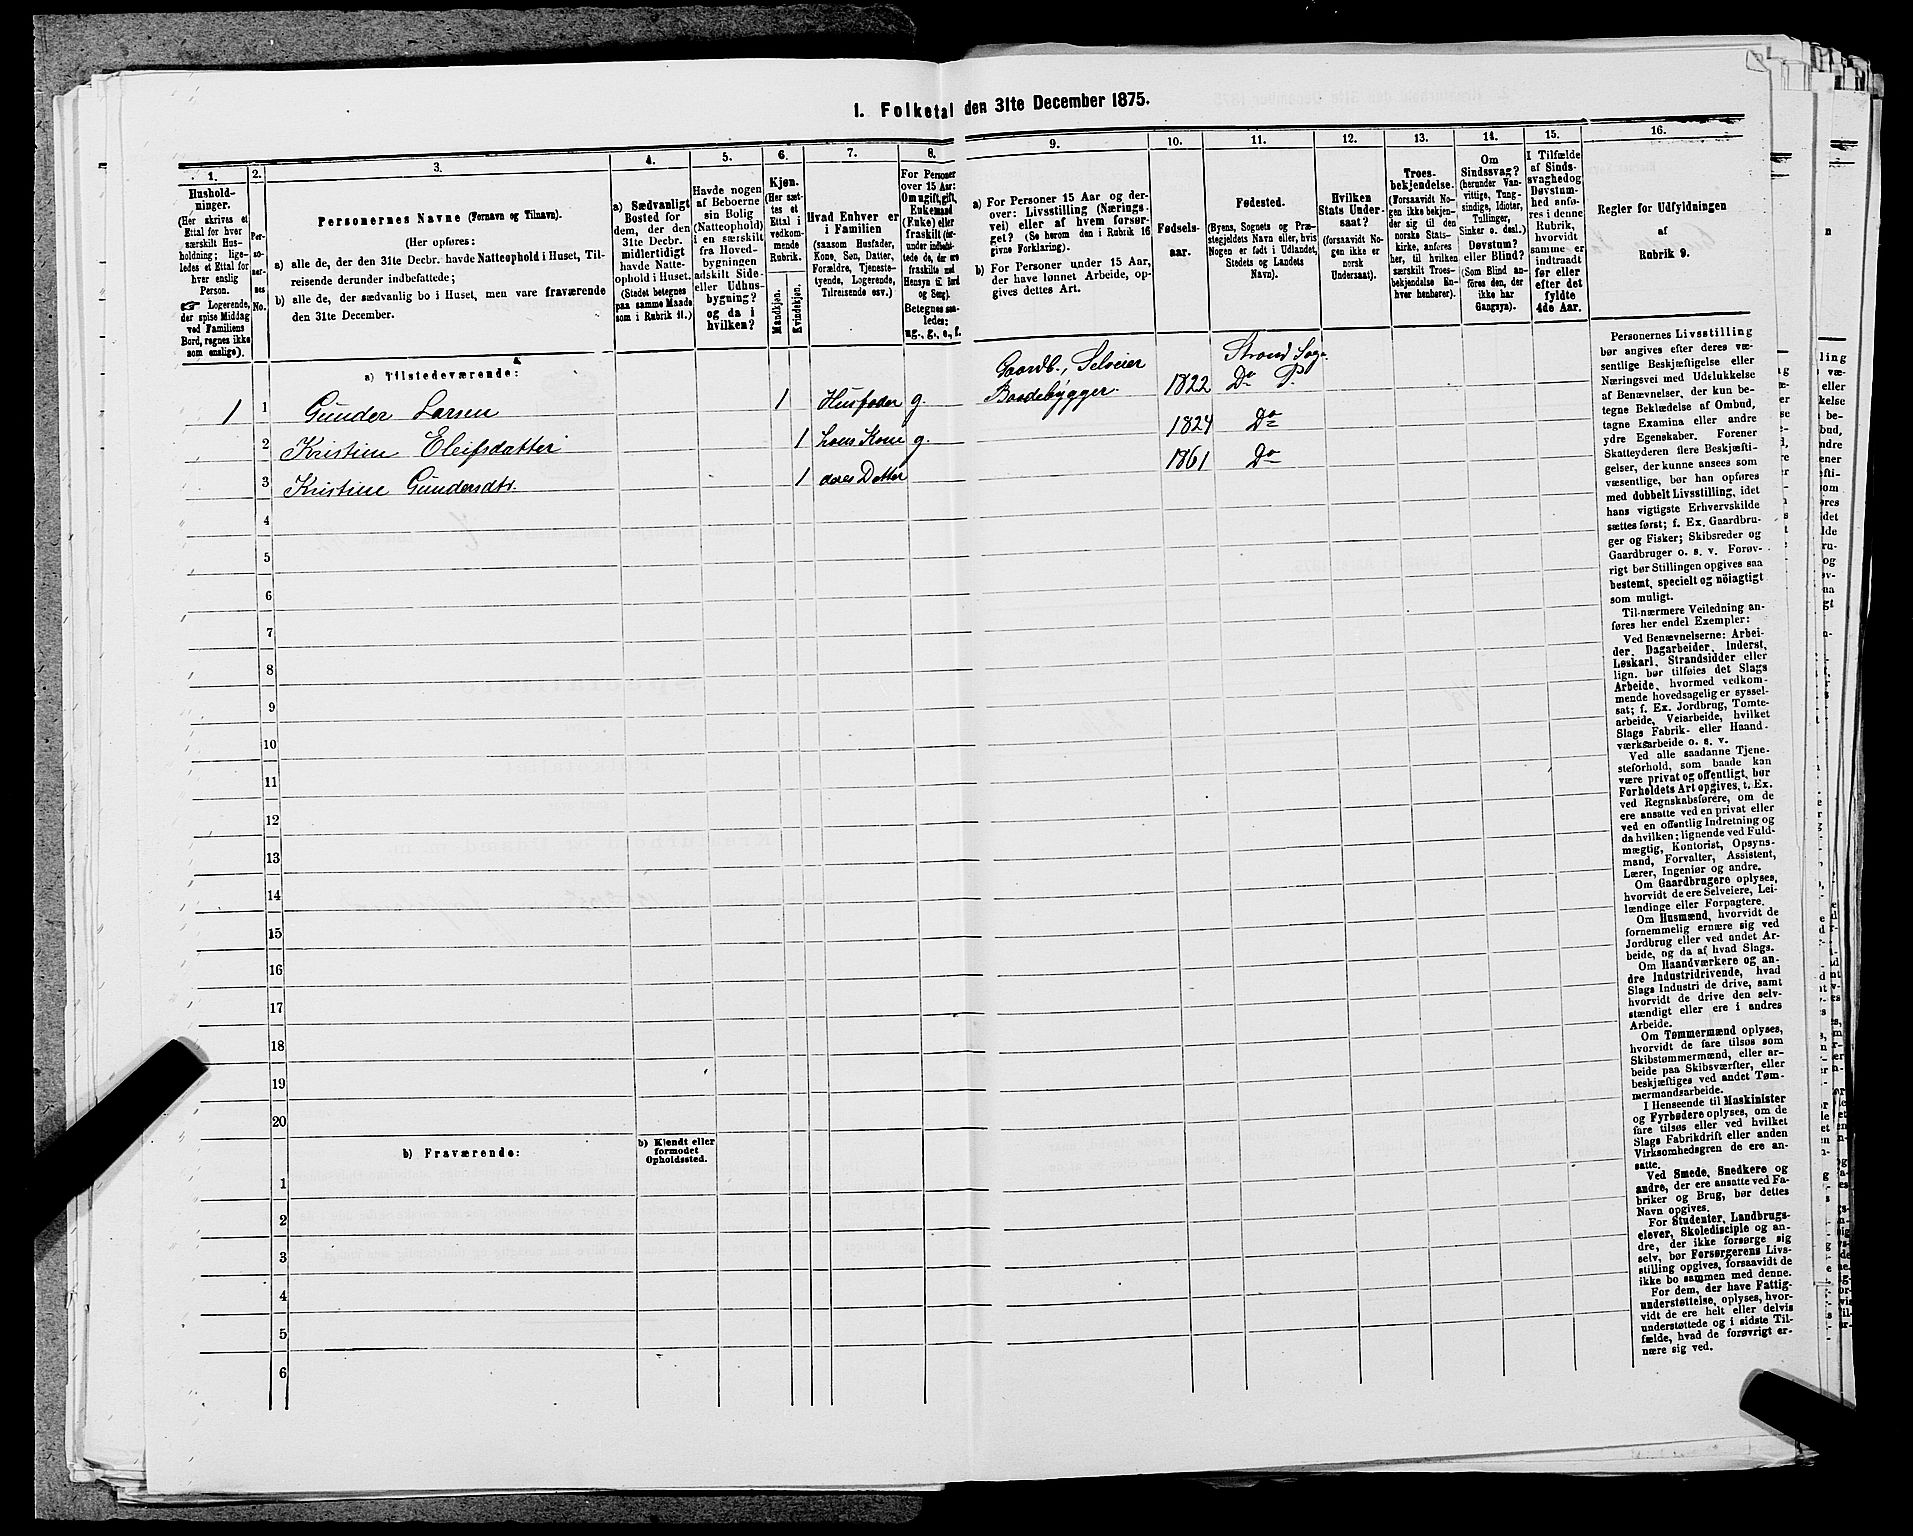 1. Folketal den 31te December 1875.
1.
2.
3.
4.
5.
6.
7.
8.
9.
10.
11.
12.
13.
14.
15.
16.
Hushold-
ninger.
(Her skrives et
Ettal for hver
særskilt Hus-
holdning; lige-
ledes et Ettal for
hver enslig
Person.
☞ Logerende,
der spise Middag
ved Familiens
Bord, regnes ikke
som enslige).
Per-
so-
ner-
nes
No.
Personernes Navne (Fornavn og Tilnavn).
(Her opføres:
a) alle de, der den 31te Decbr. havde Natteophold i Huset, Til-
reisende derunder indbefattede;
b) alle de, der sædvanlig bo i Huset, men vare fraværende
den 31te December.
a) Sædvanligt
Bosted for
dem, der den
31te Decbr.
midlertidigt
havde Natte-
ophold i Huset.
(Stedet betegnes
paa samme Maade
som i Rubrik 11.)
Havde nogen
af Beboerne
sin Bolig
(Natteophold)
i en særskilt
fra Hoved-
bygningen
adskilt Side-
eller Udhus-
bygning?
og da i
hvilken?
Kjøn.
(Her sæt-
tes et
Ettal i
vedkom-
mende
Rubrik.
Mandkjøn.
Kvindekjøn.
Hvad Enhver er
i Familien
(saasom Husfader,
Kone, Søn, Datter,
Forældre, Tjeneste-
tyende, Logerende,
Tilreisende osv.)
For Personer
over 15 Aar:
Om ugift, gift,
Enkemand
(Enke) eller
fraskilt (her-
under indbefat-
tede de, der ere
fraskilte med
Hensyn til Bord
og Seng).
Betegnes saa-
ledes:
ug., g., e., f.
a) For Personer 15 Aar og der-
over: Livsstilling (Nærings-
vei) eller af hvem forsør-
get? (Se herom den i Rubrik 16
givne Forklaring).
b) For Personer under 15 Aar,
der have lønnet Arbeide, op-
gives dettes Art.
Fødsels-
aar.
Fødested.
(Byens, Sognets og Præ-
stegjeldets Navn eller, hvis
Nogen er født i Udlandet,
Stedets og Landets
Navn).
Hvilken
Stats Under-
saat?
(forsaavidt No-
gen ikke er
norsk
Undersaat).
Troes-
bekjendelse.
(Forsaavidt No-
gen ikke bekjen-
der sig til den
norske Stats-
kirke, anføres
her, til hvilken
særskilt Troes-
bekjendelse En-
hver henhører).
Om
Sindssvag?
(herunder Van-
vittige, Tung-
sindige, Idioter,
Tullinger,
Sinker o. desl.)
Døvstum?
eller Blind?
(Som Blind an-
føres den, der
ikke har
Gangsyn).
I Tilfælde
af Sinds-
svaghed og
Døvstum-
hed anfø-
res i denne
Rubrik,
hvorvidt
indtraadt
før eller
efter det
fyldte
4de Aar.
Regler for Udfyldningen
af
Rubrik 9.
a) Tilstedeværende:
Gaardb., Selveier Strand Sogn
1 1 Gunder Larsen 1 Husfader g. Baadebygger 1822 Do P.
2 Kristine Eleifsdatter 1 hans Kone g. 1824 Do
3 Kristine Gundersdtr. 1 deres Datter 1861 Do
4
5
6
7
8
9
10
11
12
13
14
15
16
17
18
19
20
b) Fraværende:
b) Kjendt eller
formodet
Opholdssted.
1
2
3
4
5
6
Personernes Livsstilling
bør angives efter deres væ-
sentlige Beskjæftigelse eller
Næringsvei med Udelukkelse
af Benævnelser, der kun be-
tegne Beklædelse af Ombud,
tagne Examina eller andre
ydre Egenskaber. Forener
Skatteyderen flere Beskjæfti-
gelser, der kunne ansees som
væsentlige, bør han opføres
med dobbelt Livsstilling, idet
hans vigtigste Erhvervskilde
sættes først; f. Ex. Gaardbru-
ger og Fisker; Skibsreder og
Gaardbruger o. s. v. Forøv-
rigt bør Stillingen opgives saa
bestemt, specielt og nöiagtigt
som muligt.
Til nærmere Veiledning an-
føres her endel Exempler:
Ved Benævnelserne: Arbei-
der, Dagarbeider, Inderst,
Løskarl, Strandsidder eller
lign. bør tilføies det Slags
Arbeide, hvormed vedkom-
mende hovedsagelig er syssel-
sat; f. Ex. Jordbrug, Tomte-
arbeide, Veiarbeide, hvilket
Slags Fabrik- eller Haand-
værksarbeide o. s. v.
Ved alle saadanne Tjene-
steforhold, som baade kan
være privat og offentligt, bør
Forholdets Art opgives, t. Ex.
ved Regnskabsførere, om de
ere ansatte ved en privat eller
ved en offentlig Indretning og
da hvilken; lignende ved Fuld-
mægtig, Kontorist, Opsyns-
mand, Forvalter, Assistent,
Lærer, Ingeniør og andre.
Om Gaardbrugere oplyses,
hvorvidt de ere Selveiere, Lei-
lændinge eller Forpagtere.
Om Husmænd, hvorvidt de
fornemmelig ernære sig ved
Jordbrug eller ved andet Ar-
beide, og da af hvad Slags.
Om Haandværkere og an-
dre Industridrivende, hvad
Slags Industri de drive, samt
hvorvidt de drive den selv-
stændigt eller ere i andres
Arbeide.
Om Tømmermænd oplyses,
hvorvidt de fare tilsøs som
Skibstømmermænd, eller ar-
beide paa Skibsværfter, eller
beskjæftiges ved andet Tøm-
mermandsarbeide.
I Henseende til Maskinister
og Fyrbødere oplyses, om de
fare tilsøs eller ved hvilket
Slags Fabrikdrift eller anden
Virksomhedsgren de ere an-
satte.
Ved Smede, Snedkere og
andre, der ere ansatte ved Fa-
briker og Brug, bør dettes
Navn opgives.
For Studenter, Landbrugs-
elever, Skoledisciple og an-
dre, der ikke forsørge sig
selv, bør Forsørgerens Livs-
stilling opgives, forsaavidt de
ikke bo sammen med denne.
For dem, der have Fattig-
understøttelse, oplyses, hvor-
vidt de ere helt eller delvis
understøttede og i sidste Til-
fælde, hvad de forøvrigt er-
nære sig ved.